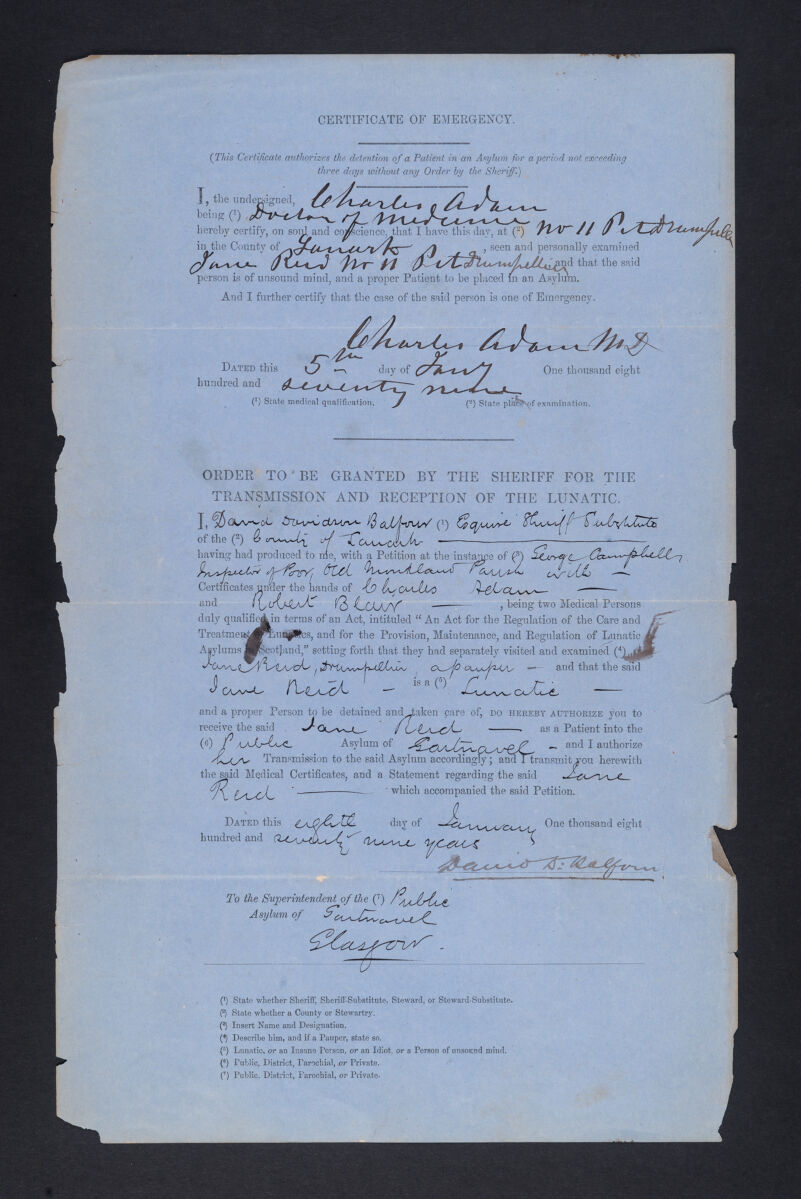 CERTIFICATE OF EMERGENCY.
(This Certificate authorizes the detention of a Patient in an Asylum for a period not exceeding
three days without any Order by the Sheriff.)
I, the undersigned, Charles Adam
being (¹) Doctor of Medicine
hereby certify, on soul and conscience, that I have this day, at (²) No 11 Pit Drumpellier
in the County of Lanark, seen and personally examined
Jane Reid No 11 Pit Drumpellier and that the said
person is of unsound mind, and a proper Patient to be placed in an Asylum.
And I further certify that the case of the said person is one of Emergency.
Charles Adam MD
DATED this 5th day of Jany One thousand eight
hundred and seventy nine
(¹) State medical qualification. (²) State place of examination.
ORDER TO BE GRANTED BY THE SHERIFF FOR THE
TRANSMISSION AND RECEPTION OF THE LUNATIC.
I, David Davidson Balfour (¹) Esquire Sheriff Substitute
of the (²) County of Lanark
having had produced to me, with a Petition at the instance of (³) George Campbell,
Inspector of Poor, Old Monkland Parish with
Certificates under the hands of Charles Adam
and Robert Blair, being two Medical Persons
duly qualified in terms of an Act, intituled "An Act for the Regulation of the Care and
Treatment Lunatics, and for the Provision, Maintenance, and Regulation of Lunatic
Asylums Scotland," setting forth that they had separately visited and examined (⁴)
Jane Reid, Drumpellier, a pauper — and that the said
Jane Reid — is a (⁵) Lunatic —
and a proper Person to be detained and taken care of, DO HEREBY AUTHORIZE you to
receive the said Jane Reid — as a Patient into the
(⁶) Public Asylum of Gartnavel — and I authorize
her Transmission to the said Asylum accordingly; and I transmit you herewith
the said Medical Certificates, and a Statement regarding the said Jane
Reid — which accompanied the said Petition.
DATED this eighth day of January One thousand eight
hundred and seventy nine years
David D. Balfour
To the Superintendent of the (⁷) Public
Asylum of Gartnavel
Glasgow.
(¹) State whether Sheriff, Sheriff-Substitute, Steward, or Steward-Substitute.
(²) State whether a County or Stewartry.
(³) Insert Name and Designation.
(⁴) Describe him, and if a Pauper, state so.
(⁵) Lunatic, or an Insane Person, or an Idiot, or a Person of unsound mind.
(⁶) Public, District, Parochial, or Private.
(⁷) Public, District, Parochial, or Private.